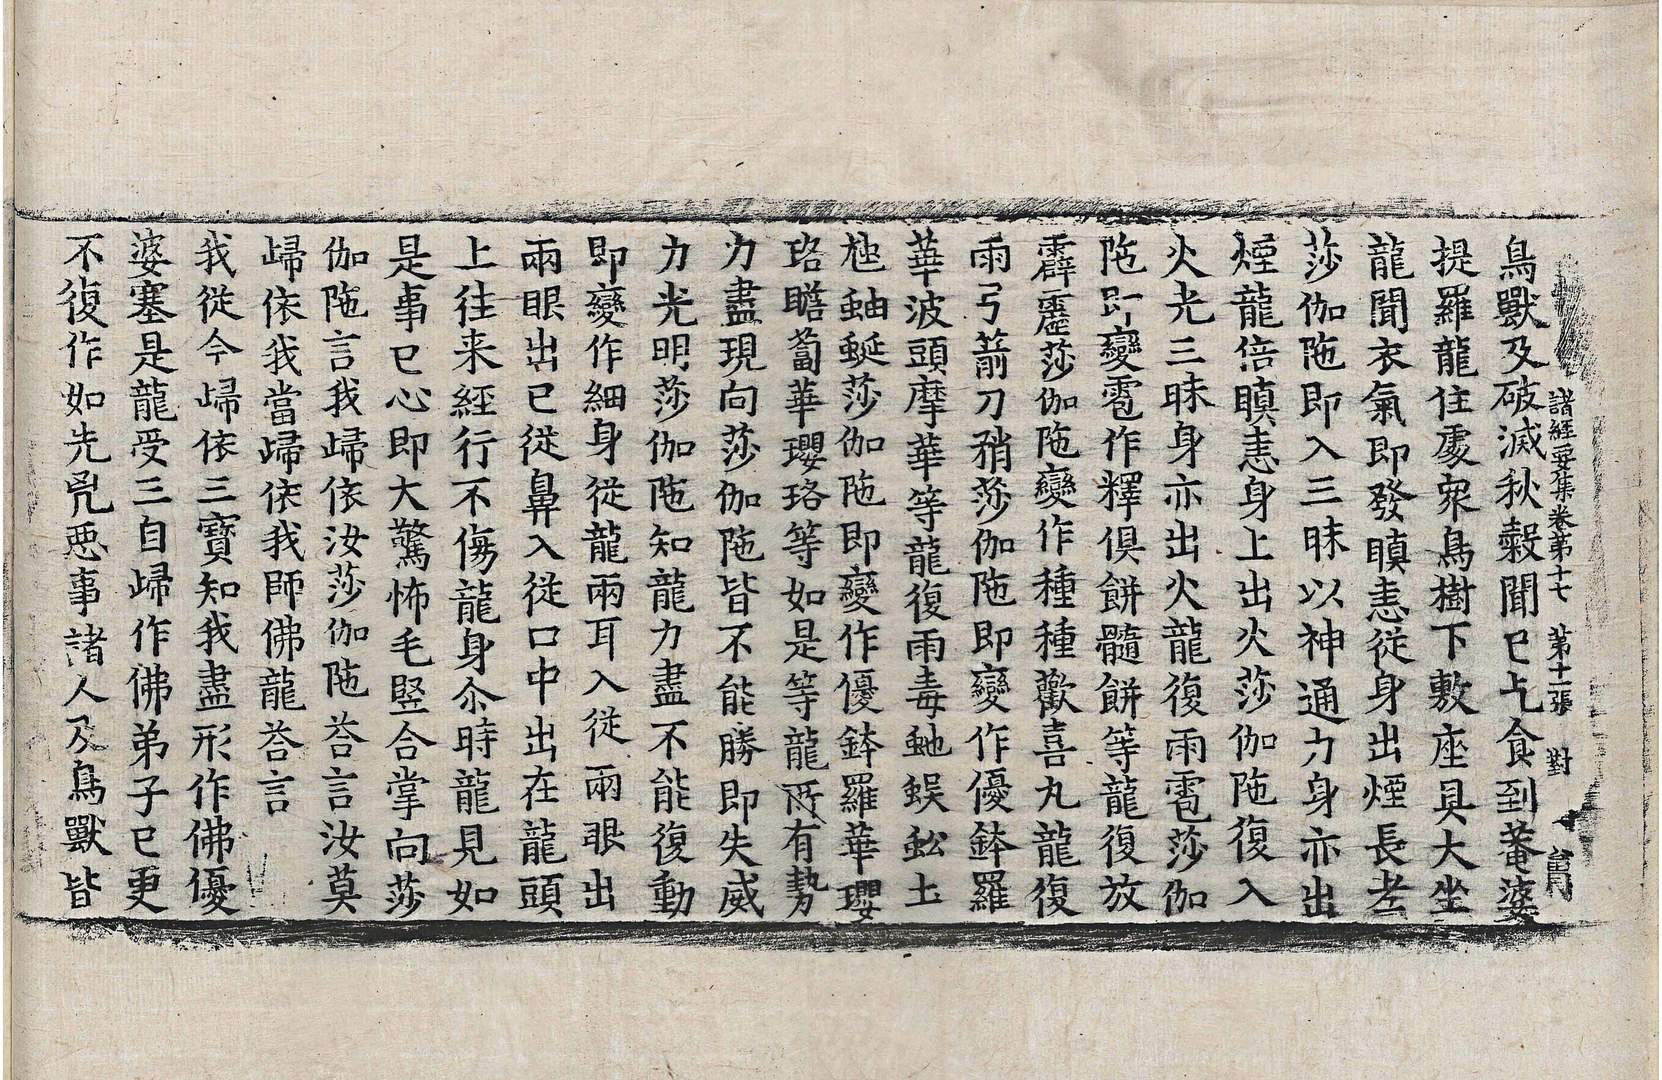 諸經要集卷第十七 第十一張 對
鳥獸及破滅秋穀聞已乞食到菴婆
提羅龍住處衆鳥樹下敷座具大坐
龍聞衣氣即發瞋恚從身出煙長老
莎伽陁即入三昧以神通力身亦出
煙龍倍瞋恚身上出火莎伽陁復入
火光三昧身亦出火龍復雨雹莎伽
陁即變雹作釋俱餅髓餅等龍復放
霹靂莎伽陁變作種種歡喜丸龍復
雨弓箭刀矟莎伽陁即變作優鉢羅
華波頭摩華等龍復雨毒虵蜈蚣土
虺蚰蜒莎伽陁即變作優鉢羅華瓔
珞瞻蔔華瓔珞等如是等龍所有勢
力盡現向莎伽陁皆不能勝即失威
力光明莎伽陁知龍力盡不能復動
即變作細身從龍兩耳入從兩眼出
兩眼出已從鼻入從口中出在龍頭
上往来經行不傷龍身尒時龍見如
是事已心即大驚怖毛竪合掌向莎
伽陁言我歸依汝莎伽陁荅言汝莫
歸依我當歸依我師佛龍荅言
我從今歸依三寶知我盡形作佛優
婆塞是龍受三自歸作佛弟子已更
不復作如先兇惡事諸人及鳥獸皆